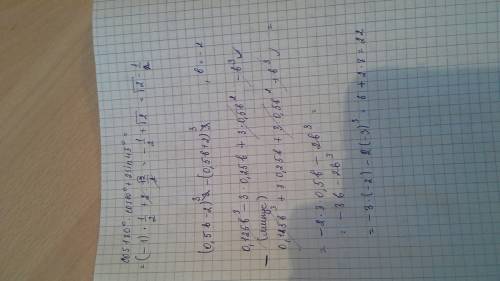 cos 180° · cos 60° + 2 sin 45° =
= (-1) · 1/2 + 2 · √2/2 = -1/2 + √2 = √2 - 1/2
(0,5b - 2)³ - (0,5b + 2)³ , b = -2
0,125b³ - 3 · 0,25b + 3 · 0,5b² - b³
— (минус)
0,125b³ + 3 · 0,25b + 3 · 0,5b² + b³ =
= -2 · 3 · 0,5b - 2b³ =
= -3b - 2b³
= -3 · (-2) - 2(-2)³ = 6 + 2 · 8 = 22